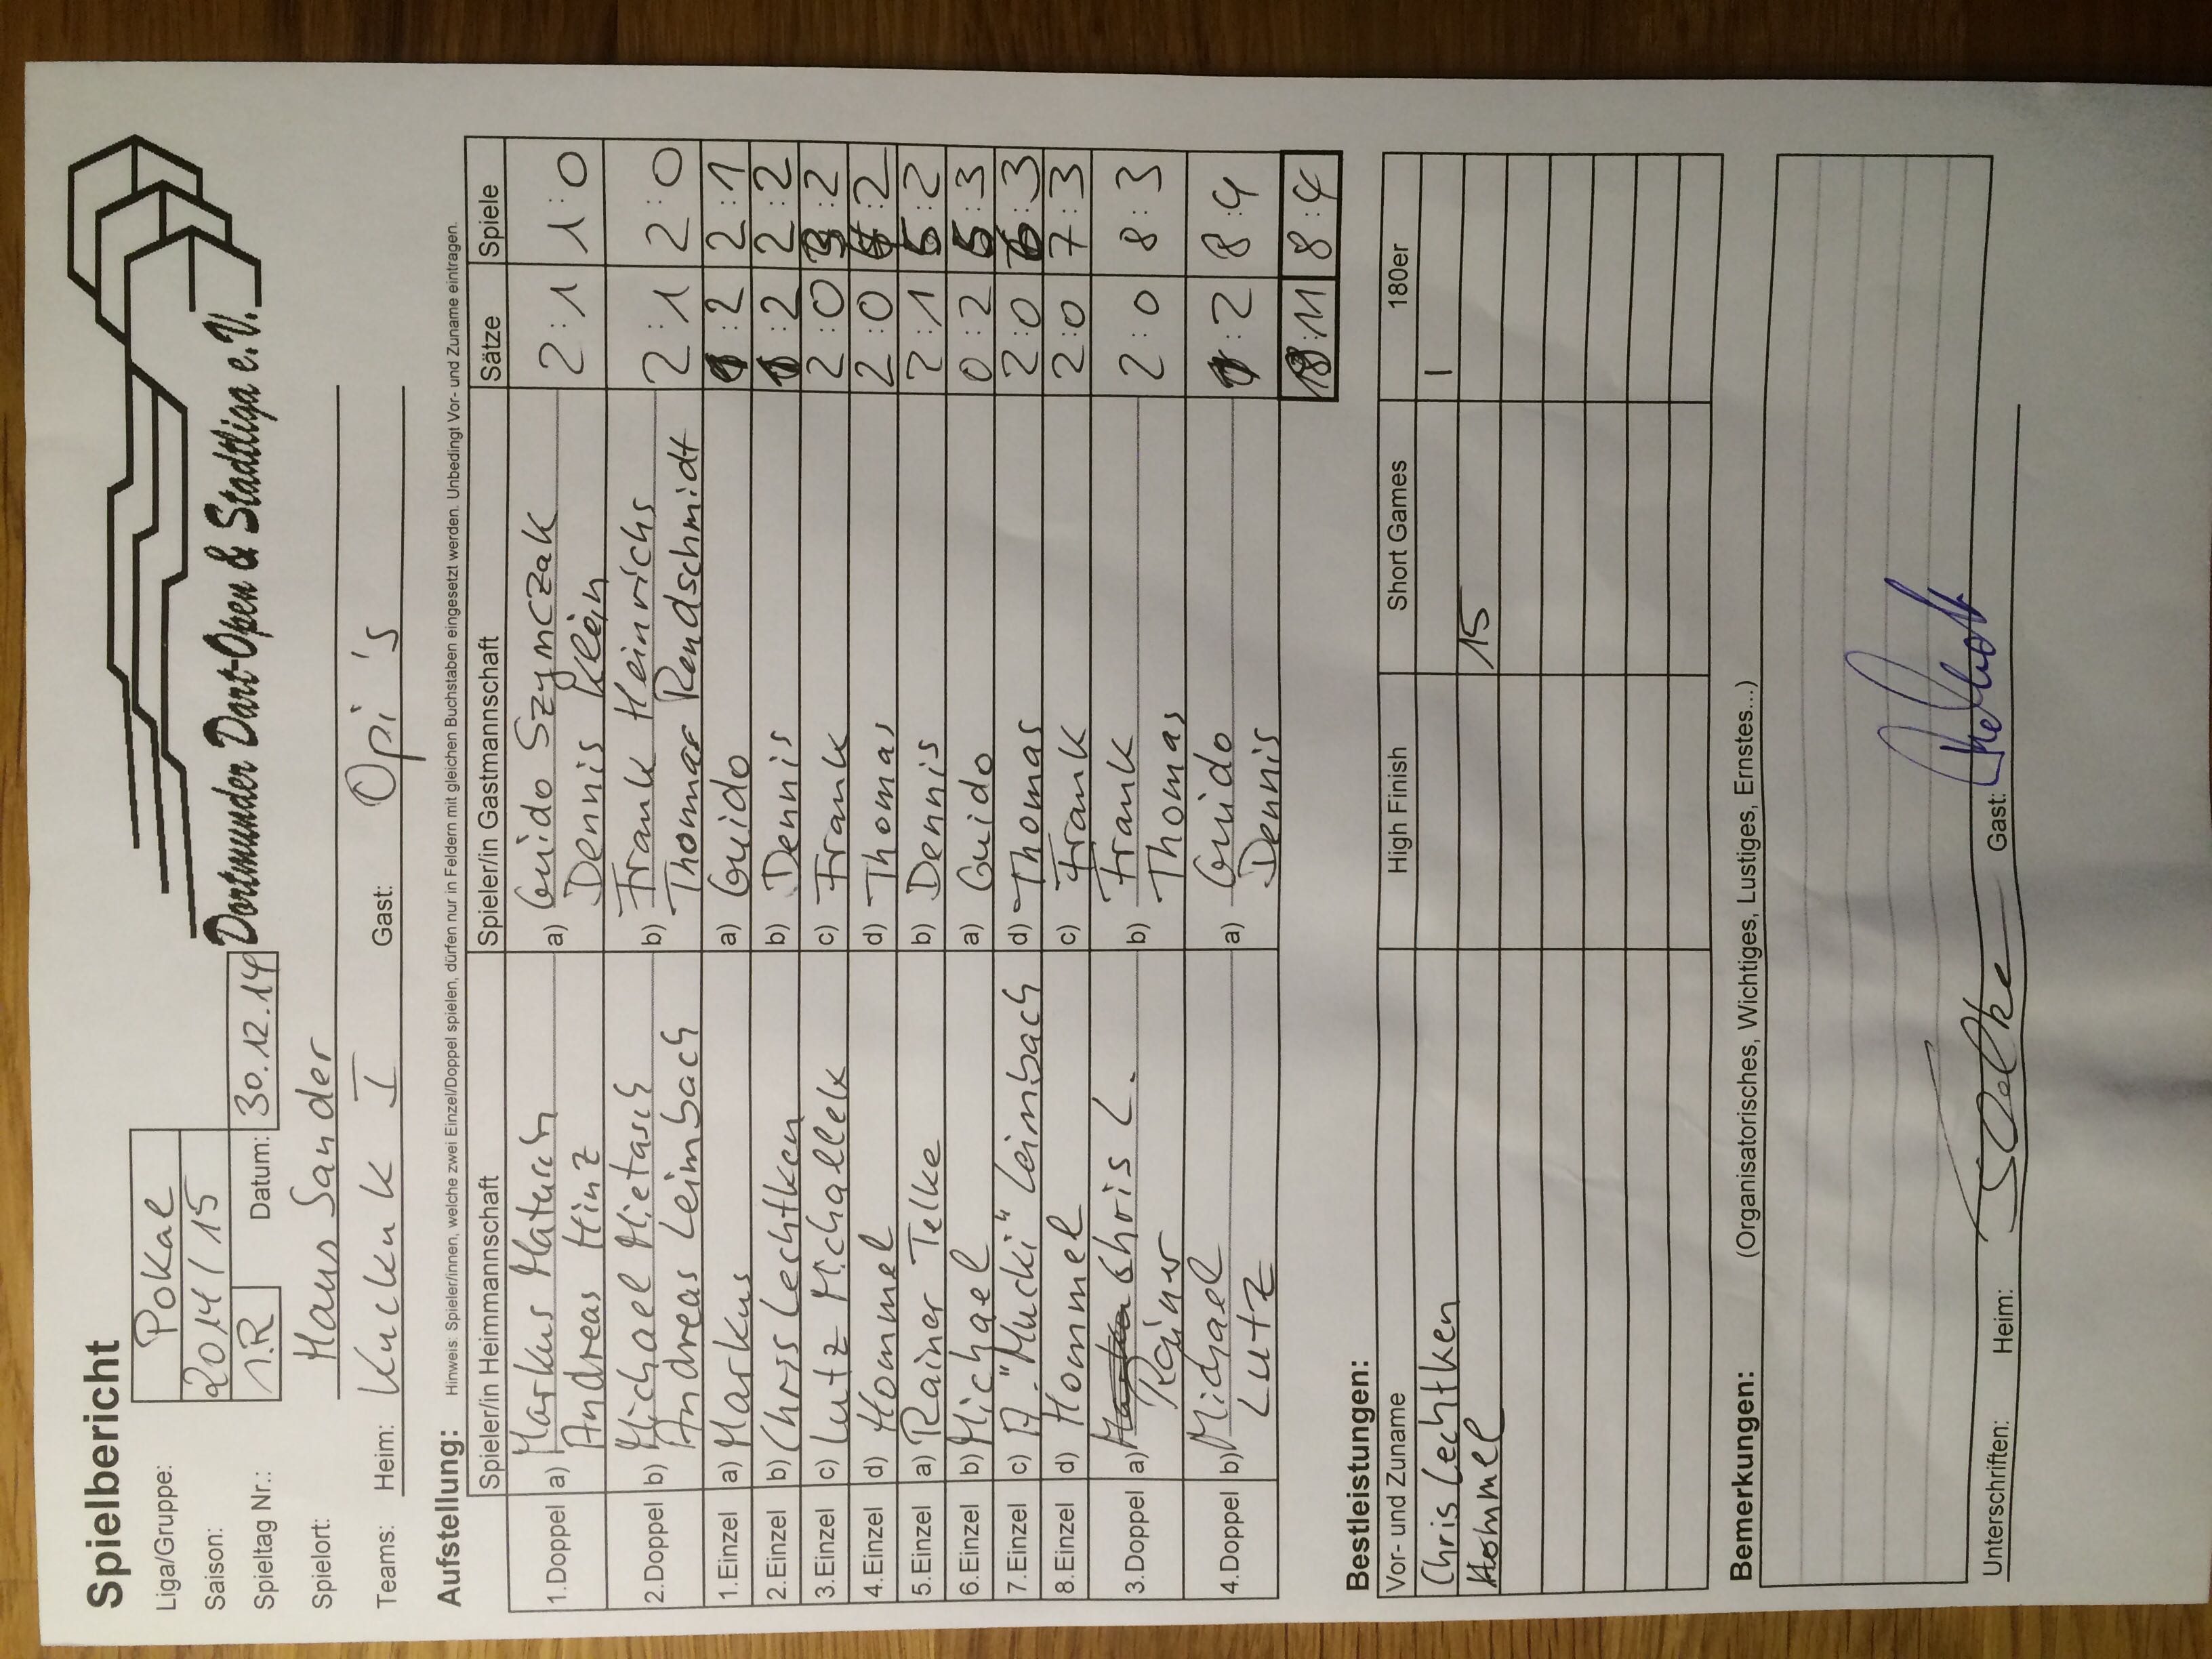 Spielbericht
Dortmunder Dart-Open & Stadtliga e.V.
Liga/Gruppe: Pokal
Saison: 2014/15
Spieltag Nr.: 1.R Datum: 30.12.14
Spielort: Haus Sander
Teams: Heim: Kuckuk I Gast: Opi's
Aufstellung: Hinweis: Spieler/innen, welche zwei Einzel/Doppel spielen, dürfen nur in Feldern mit gleichen Buchstaben eingesetzt werden. Unbedingt Vor- und Zuname eintragen.
Spieler/in Heimmannschaft Spieler/in Gastmannschaft Sätze Spiele
1.Doppel a) Markus Maturch a) Guido Szymczak 2:1 1:0
Andreas Hinz Dennis Klein
2.Doppel b) Michael Mietasch b) Frank Heinrichs 2:1 2:0
Andreas Leimbach Thomas Rendschmidt
1.Einzel a) Markus a) Guido :2 2:1
2.Einzel b) Chris Lechtken b) Dennis :2 2:2
3.Einzel c) Lutz Michallek c) Frank 2:0 3:2
4.Einzel d) Hommel d) Thomas 2:0 4:2
5.Einzel a) Rainer Telke b) Dennis 2:1 5:2
6.Einzel b) Michael a) Guido 0:2 5:3
7.Einzel c) A. "Mucki" Leimbach d) Thomas 2:0 6:3
8.Einzel d) Hommel c) Frank 2:0 7:3
3.Doppel a) Chris L. b) Frank 2:0 8:3
Rainer Thomas
4.Doppel b) Michael a) Guido :2 8:4
Lutz Dennis
:11 8:4
Bestleistungen:
Vor- und Zuname High Finish Short Games 180er
Chris Lechtken I
Hommel 15
Bemerkungen: (Organisatorisches, Wichtiges, Lustiges, Ernstes...)
Unterschriften: Heim: Gast: